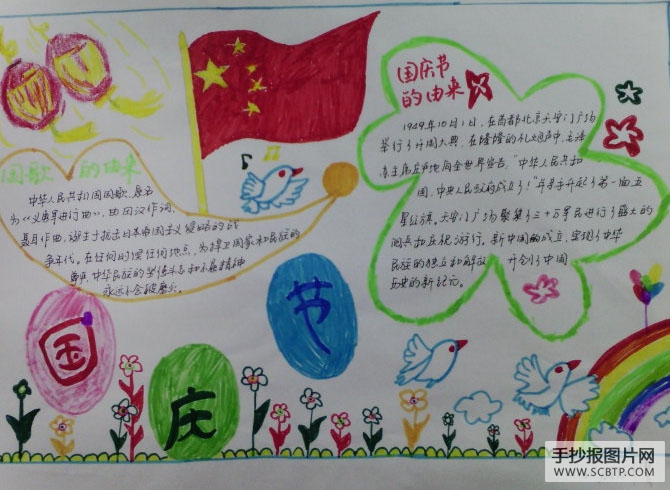 国歌的由来
中华人民共和国国歌，原名
为《义勇军进行曲》，由田汉作词，
聂耳作曲，诞生于抗击日本帝国主义侵略的战
争年代。在任何时空任何地点，为捍卫国家和民族的
尊严，中华民族的坚强斗志和不屈精神
永远不会被磨灭。
国庆节
的由来
1949年10月1日，在首都北京天安门广场
举行了开国大典，在隆隆的礼炮声中，毛泽
东主席庄严地向全世界宣告，“中华人民共和
国，中央人民政府成立了！”并亲手升起了第一面五
星红旗。天安门广场聚集了三十万军民进行了盛大的
阅兵和庆祝游行。新中国的成立，实现了中华
民族的独立和解放，开创了中国
历史的新纪元。
国
庆
节
手抄报图片网
WWW.SCBTP.COM